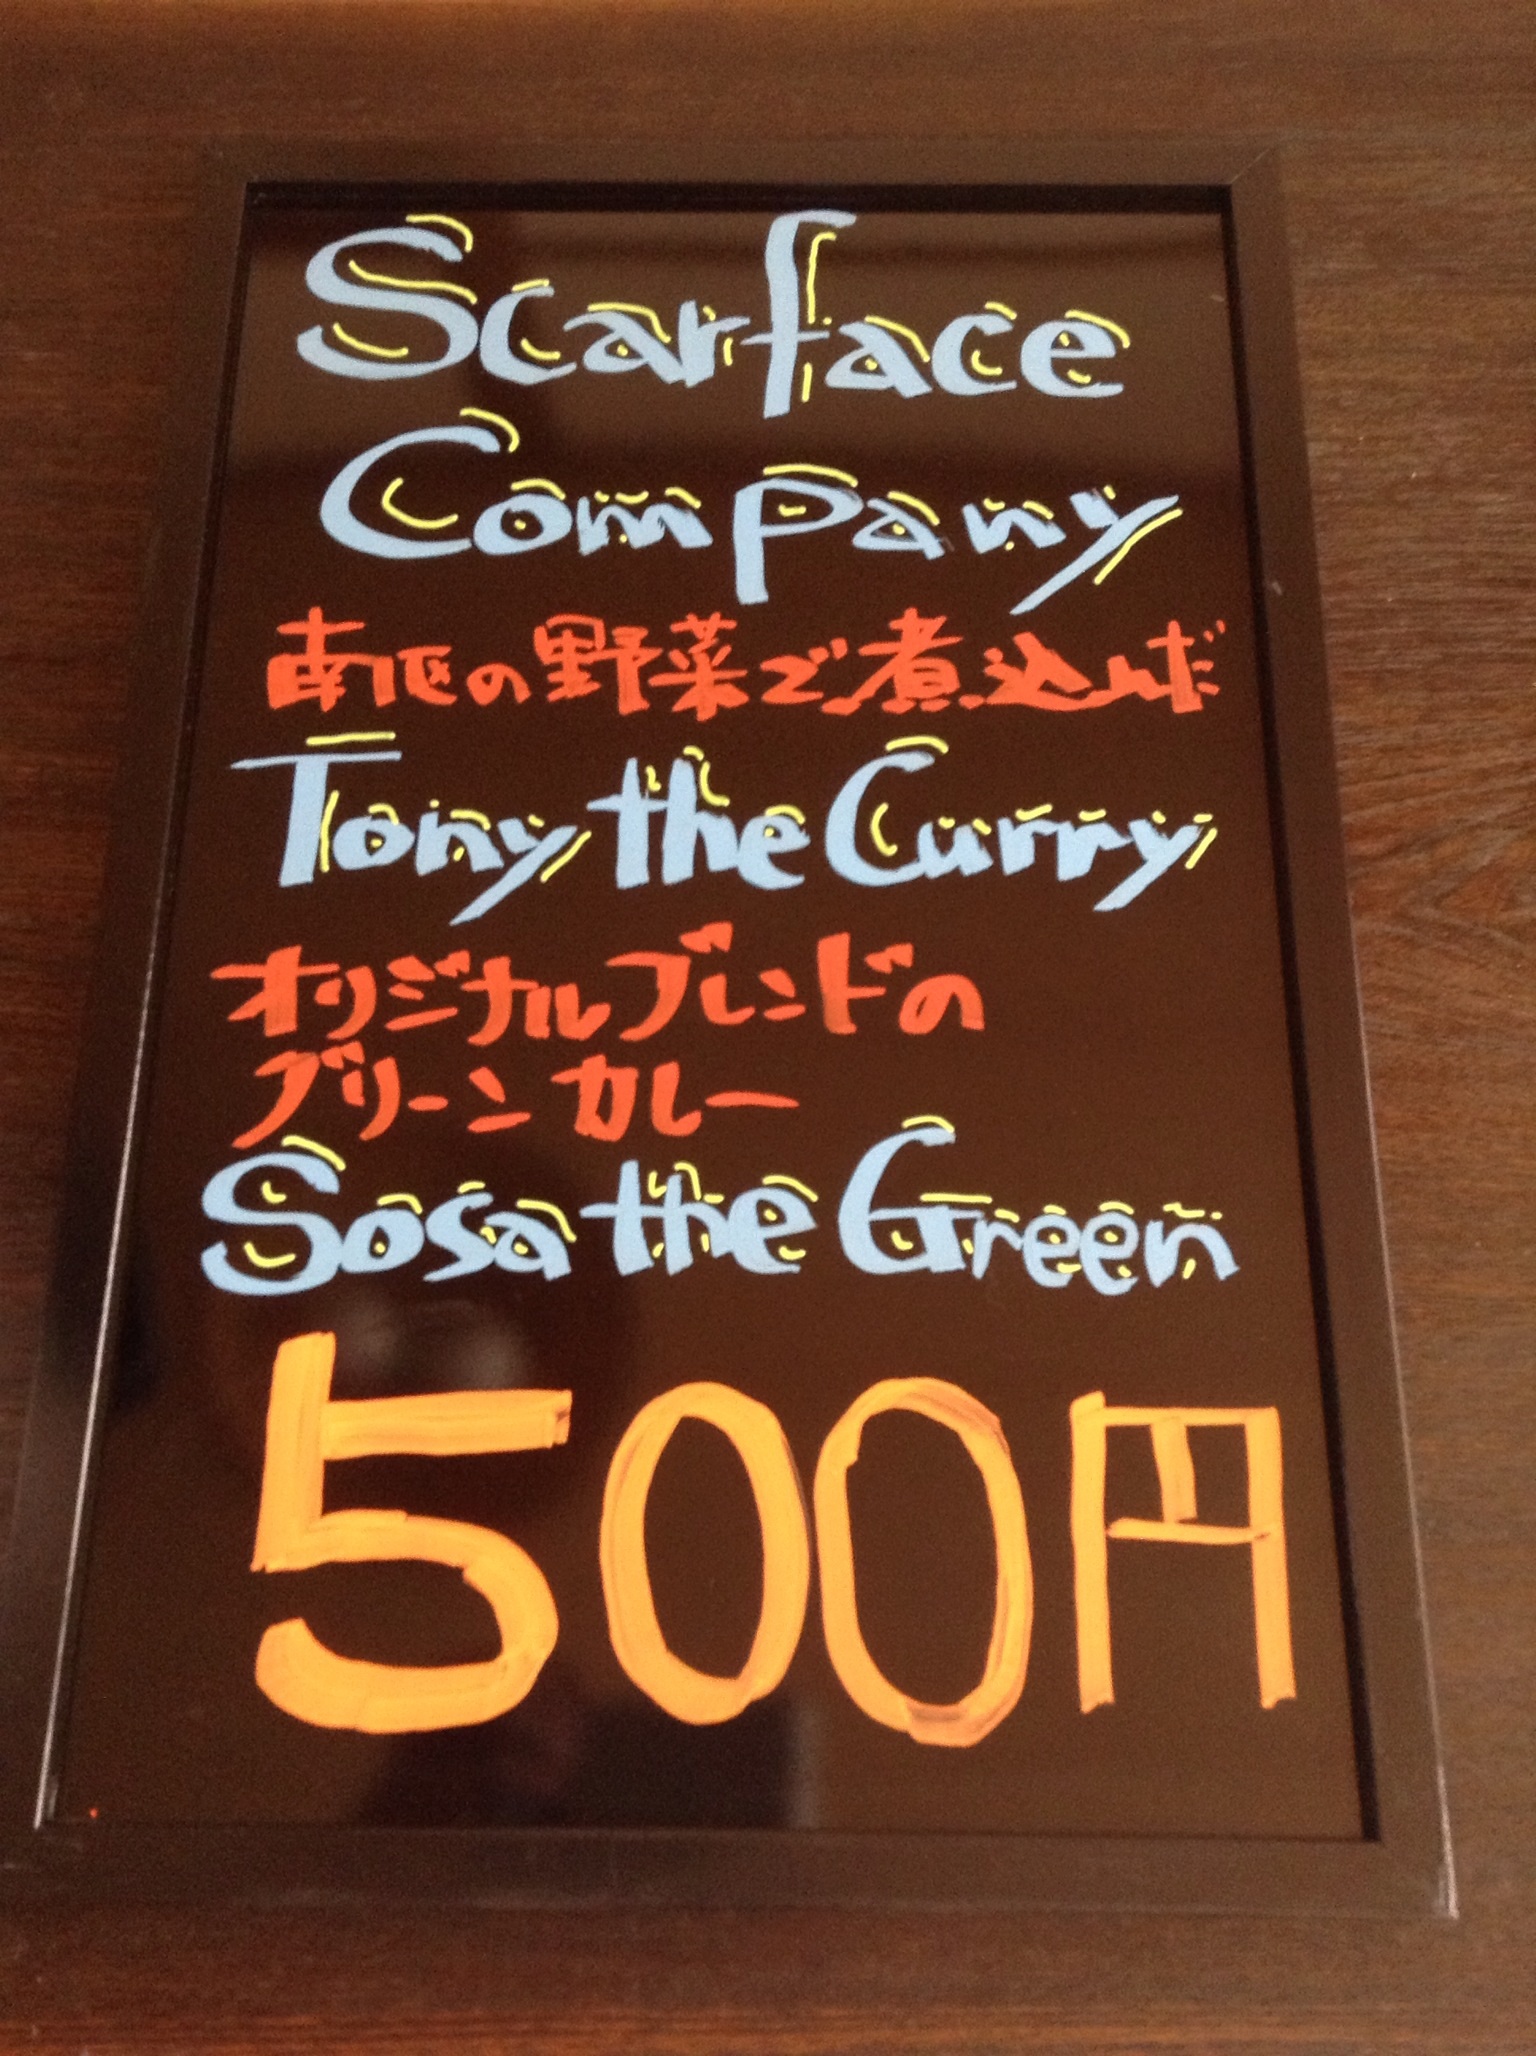 Scarface
Company
南阪の野菜で煮込んだ
Tony the Curry
オリジナルブレンドの
グリーンカレー
Sosa the Green
500円